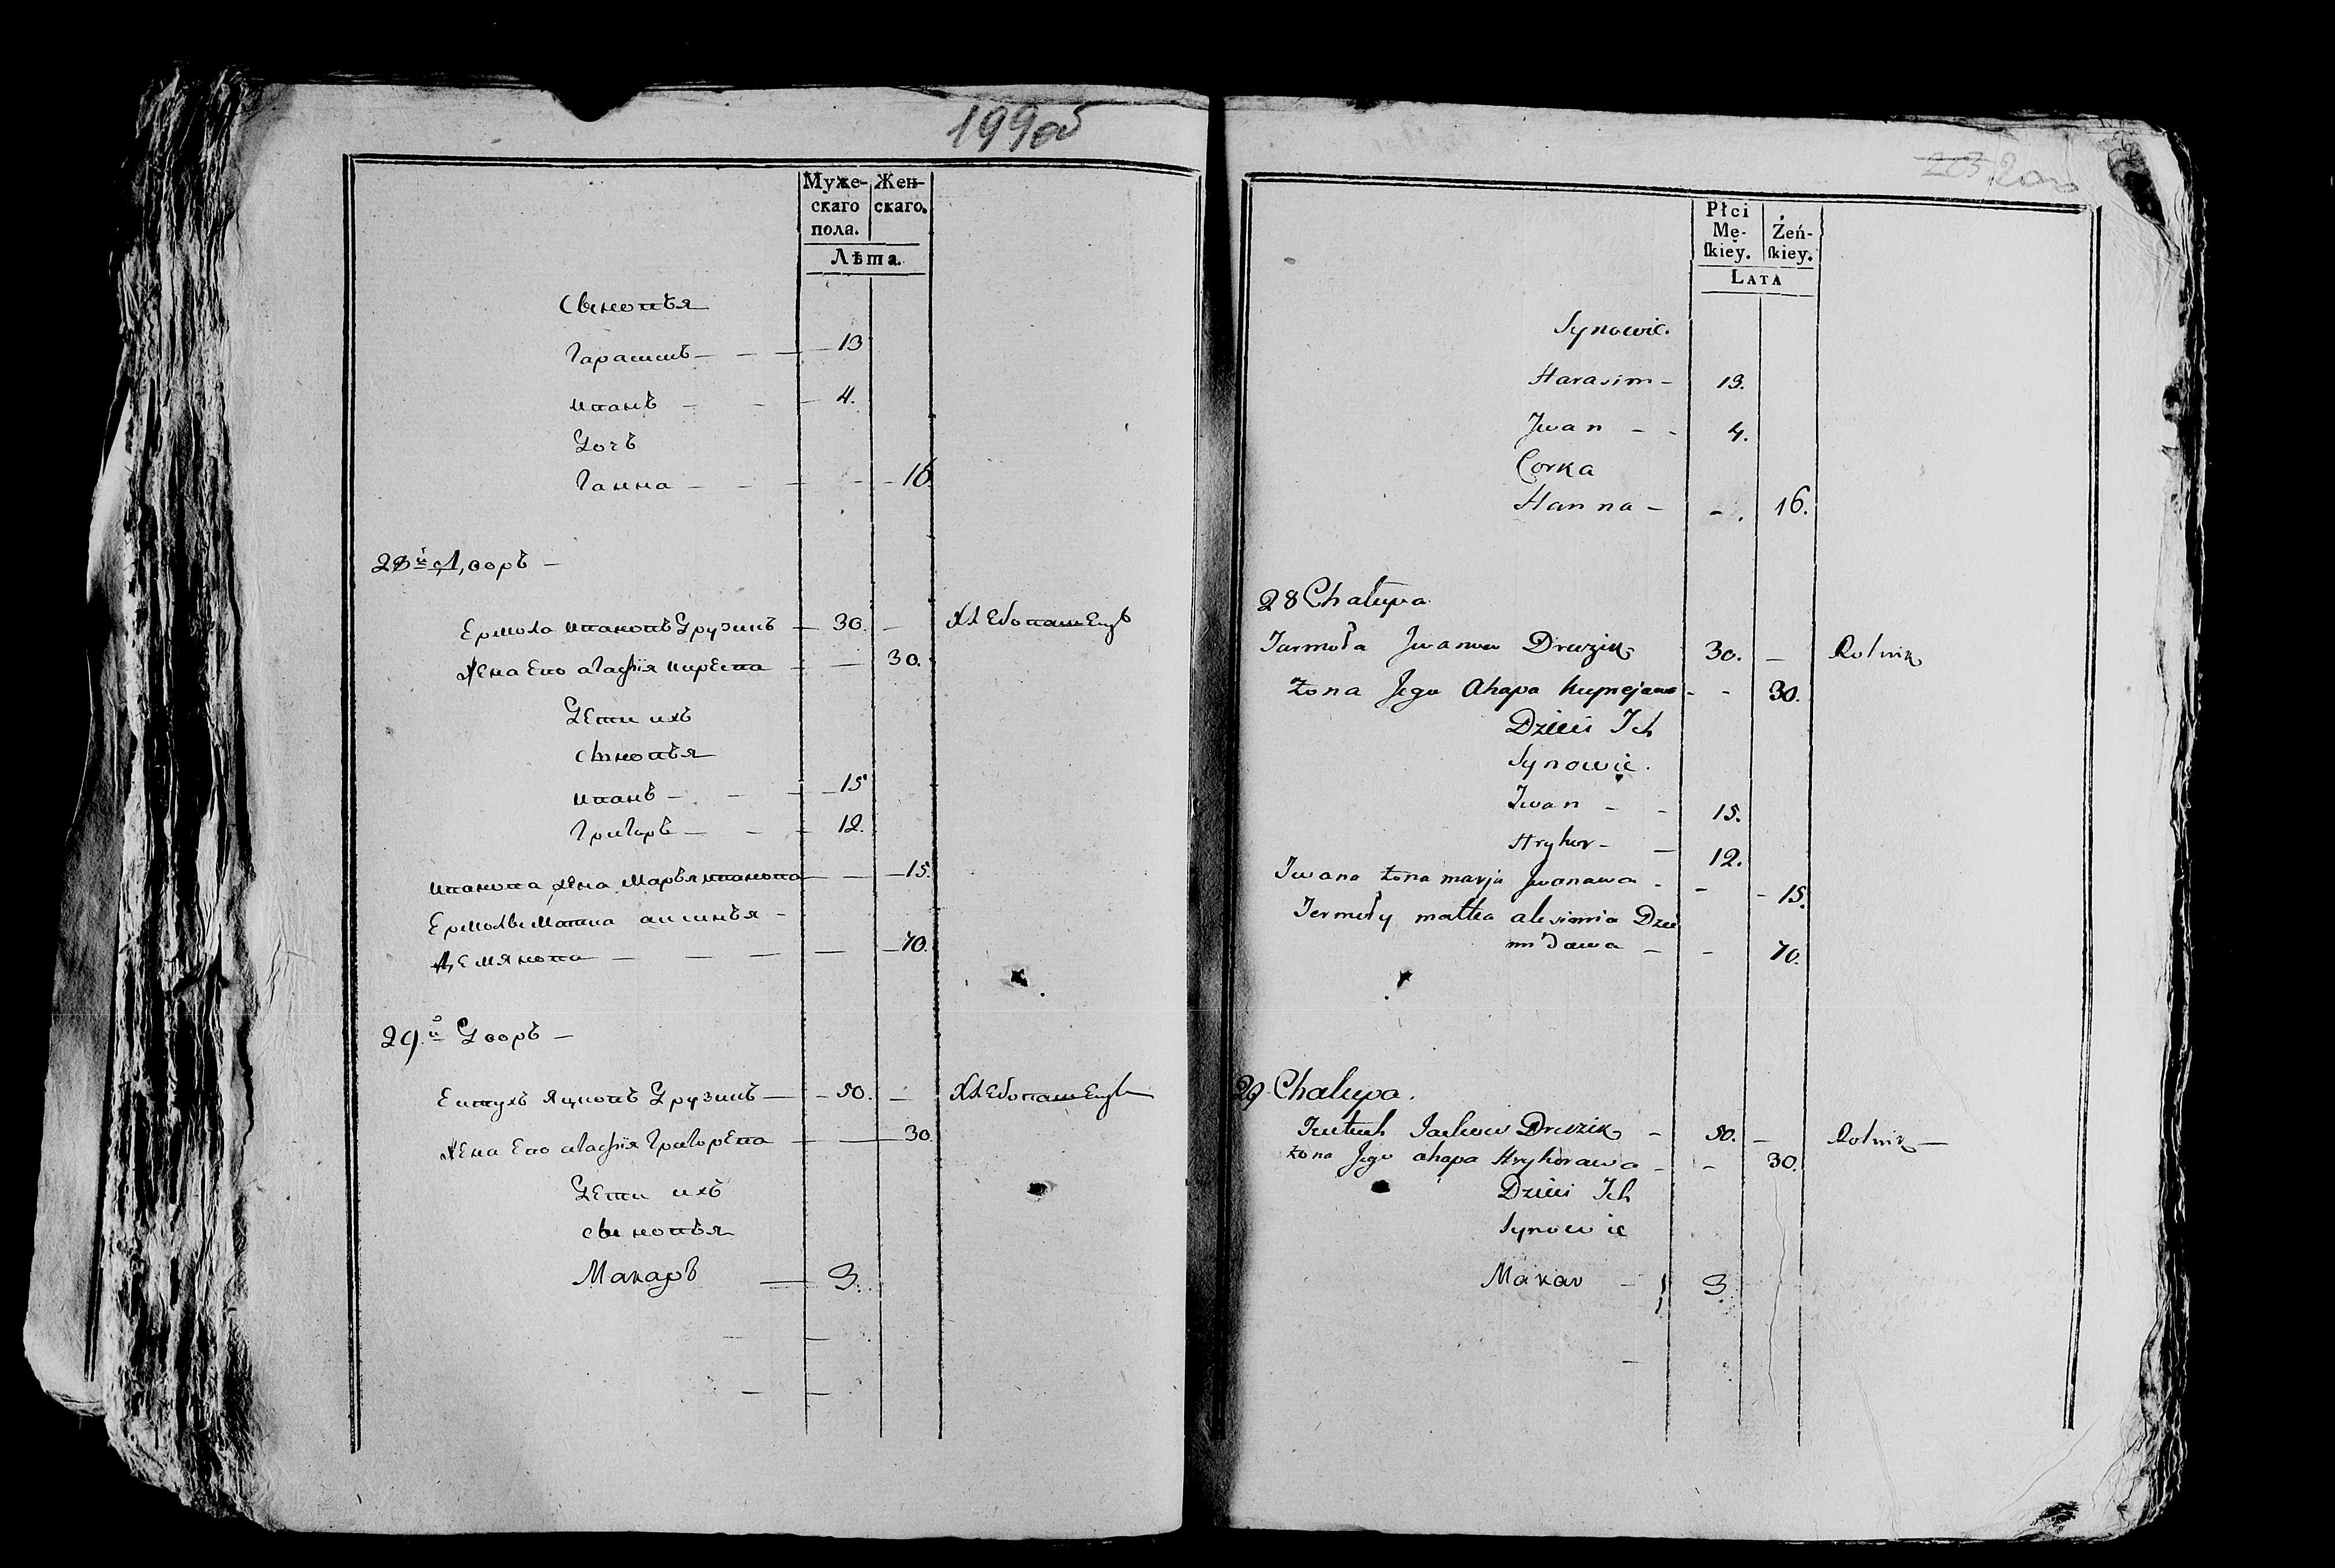 199об
Муже- Жен-
скаго скаго.
пола.
Лѣта.
Сыновья
Гарасимъ — — — 13
Иванъ — — — 4.
Дочь
Ганна — — — - - 16.
28й Дворъ —
Ермола Ивановъ Друзикъ — 30. — Хлебопашецъ
Жена Его Агафія — — 30.
Дети ихъ
сыновья
Иванъ — — — 15
Григоръ — — — 12.
Иванова жена Марья Иванова — — — 15.
Ермолы Матка —
Демянова — — — — — 70.
29й Дворъ —
Евтухъ Яцковъ Друзикъ — - 50. — Хлебопашецъ
Жена Его Агафія Григорева — — 30
Дети ихъ
сыновья
Макаръ — 3.
203 200
Płci Żeń-
Mę- skiey.
skiey.
LATA
Synowie.
Harasim - 13.
Jwan - - 4.
Corka
Hanna - - . 16.
28 Chalupa
Jarmoła Jwanow Druzik 30. — Rolnik
żona Jego Ahapa - - 30.
Dzieci Ich
Synowie.
Iwan - - 15.
Hryhor - — 12.
Iwana żona marja Jwanawa - - - 15.
Jermoły matka
- - 70.
29 Chalupa.
Jackow Druzik - 50. — Rolnik —
żona Jego ahapa Hryhorawa - - 30.
Dzieci Ich
Synowie
Makar - 3.